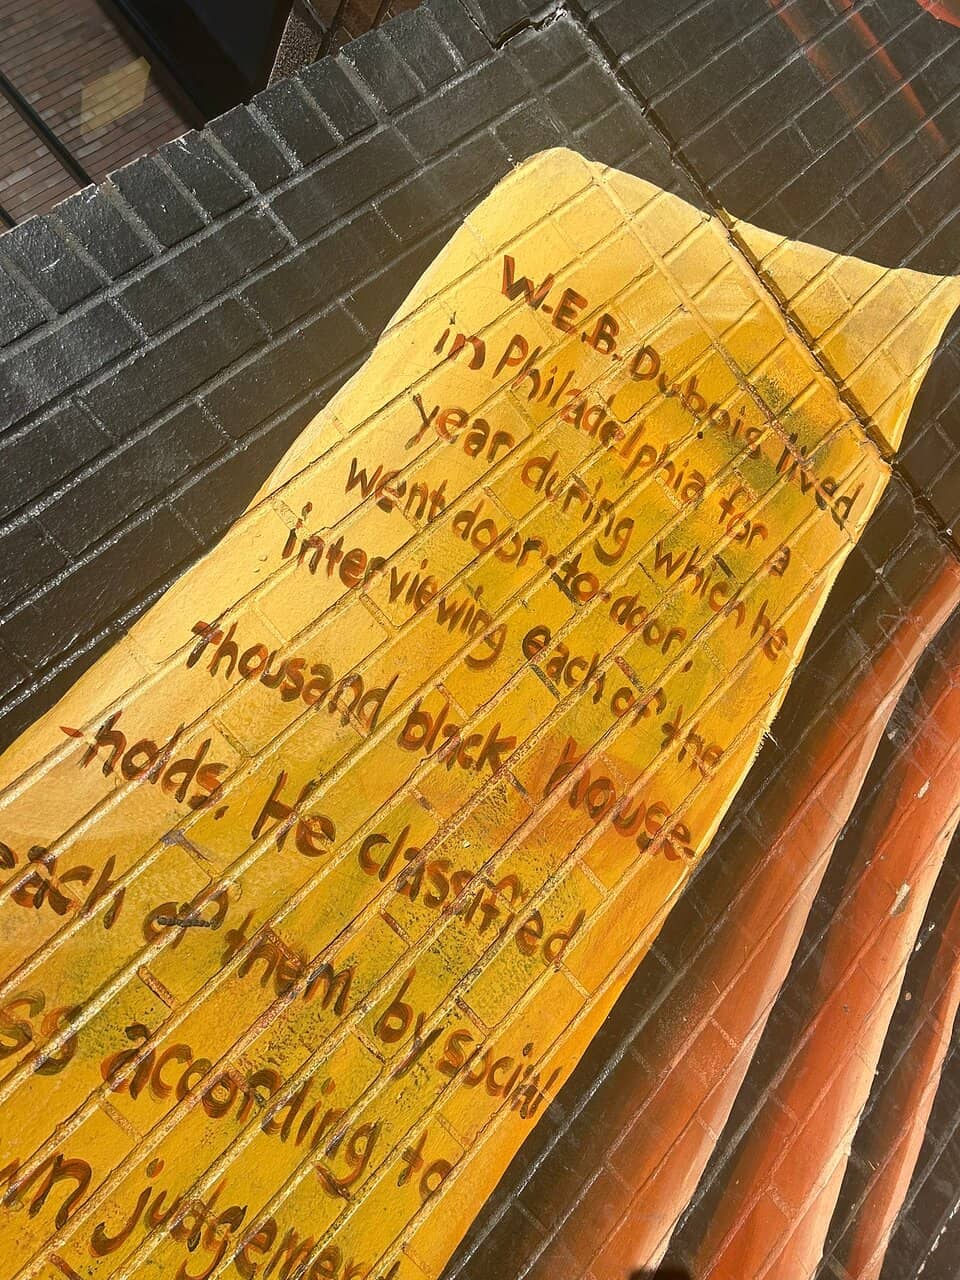 W.E.B. Dubois lived
in Philadelphia for a
year during which he
went door-to-door.
interviewing each of the
thousand black house
-holds. He classified
each of them by social
ss according to
wn judgement